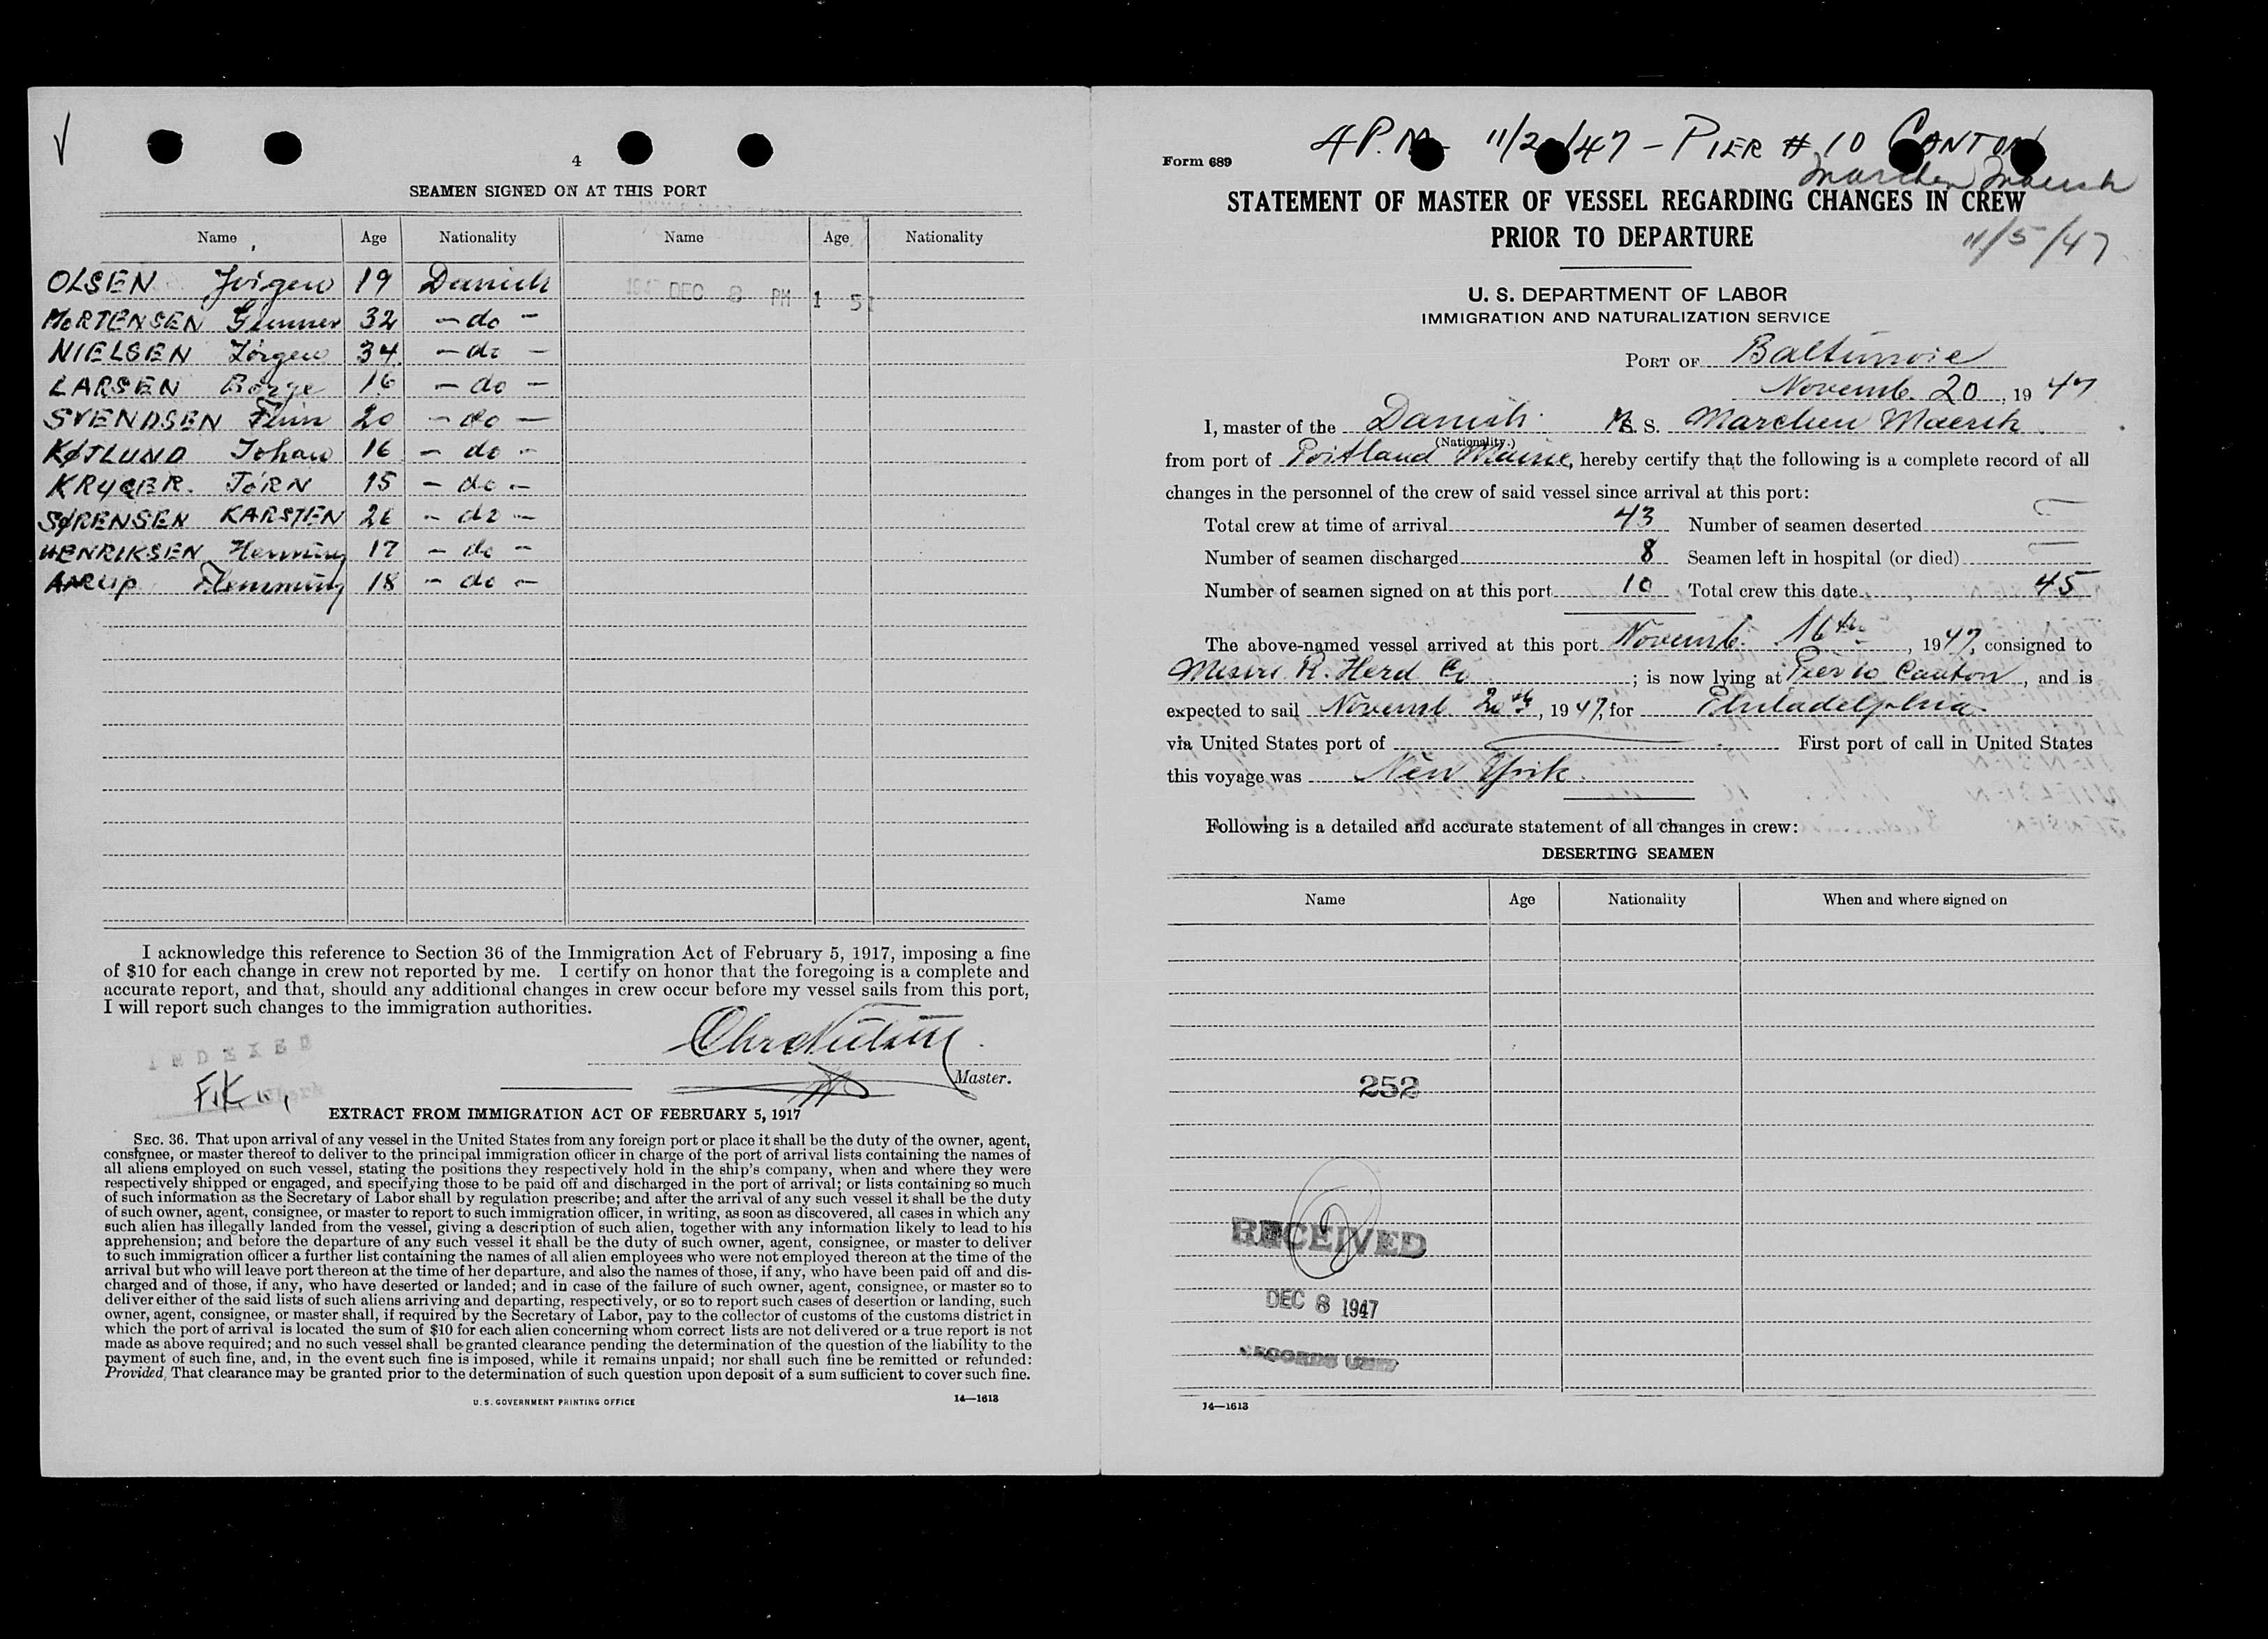 4
SEAMEN SIGNED ON AT THIS PORT
Name Age Nationality Name Age Nationality
1947 DEC 8 PM 1 51
OLSEN Jörgen 19 Danish
MORTENSEN Gunner 32 - do -
NIELSEN Jörgen 34 - do -
LARSEN Börge 16 - do -
SVENDSEN Finn 20 - do -
KØTLUND Johan 16 - do -
KRYGER. JÖRN 15 - do -
SØRENSEN KARSTEN 26 - do -
HENRIKSEN Henning 17 - do -
AARUP Flemming 18 - do -
I acknowledge this reference to Section 36 of the Immigration Act of February 5, 1917, imposing a fine
of $10 for each change in crew not reported by me. I certify on honor that the foregoing is a complete and
accurate report, and that, should any additional changes in crew occur before my vessel sails from this port,
I will report such changes to the immigration authorities.
Master.
INDEXED
EXTRACT FROM IMMIGRATION ACT OF FEBRUARY 5, 1917
SEC. 36. That upon arrival of any vessel in the United States from any foreign port or place it shall be the duty of the owner, agent,
consignee, or master thereof to deliver to the principal immigration officer in charge of the port of arrival lists containing the names of
all aliens employed on such vessel, stating the positions they respectively hold in the ship's company, when and where they were
respectively shipped or engaged, and specifying those to be paid off and discharged in the port of arrival; or lists containing so much
of such information as the Secretary of Labor shall by regulation prescribe; and after the arrival of any such vessel it shall be the duty
of such owner, agent, consignee, or master to report to such immigration officer, in writing, as soon as discovered, all cases in which any
such alien has illegally landed from the vessel, giving a description of such alien, together with any information likely to lead to his
apprehension; and before the departure of any such vessel it shall be the duty of such owner, agent, consignee, or master to deliver
to such immigration officer a further list containing the names of all alien employees who were not employed thereon at the time of the
arrival but who will leave port thereon at the time of her departure, and also the names of those, if any, who have been paid off and dis-
charged and of those, if any, who have deserted or landed; and in case of the failure of such owner, agent, consignee, or master so to
deliver either of the said lists of such aliens arriving and departing, respectively, or so to report such cases of desertion or landing, such
owner, agent, consignee, or master shall, if required by the Secretary of Labor, pay to the collector of customs of the customs district in
which the port of arrival is located the sum of $10 for each alien concerning whom correct lists are not delivered or a true report is not
made as above required; and no such vessel shall be granted clearance pending the determination of the question of the liability to the
payment of such fine, and, in the event such fine is imposed, while it remains unpaid; nor shall such fine be remitted or refunded:
Provided, That clearance may be granted prior to the determination of such question upon deposit of a sum sufficient to cover such fine.
U.S. GOVERNMENT PRINTING OFFICE 14—1613
4 P.M. 11/20/47 - PIER # 10 CANTON
Form 689
Marchen Maersk
STATEMENT OF MASTER OF VESSEL REGARDING CHANGES IN CREW
PRIOR TO DEPARTURE
11/5/47
U. S. DEPARTMENT OF LABOR
IMMIGRATION AND NATURALIZATION SERVICE
PORT OF Baltimore
Novemb. 20, 19 47
I, master of the Danish M. S. Marchen Maersk
(Nationality.)
from port of Portland Maine, hereby certify that the following is a complete record of all
changes in the personnel of the crew of said vessel since arrival at this port:
Total crew at time of arrival 43 Number of seamen deserted —
Number of seamen discharged 8 Seamen left in hospital (or died) —
Number of seamen signed on at this port 10 Total crew this date 45
The above-named vessel arrived at this port Novemb. 16th, 1947, consigned to
Messrs. R. Herd Co; is now lying at Pier 10 Canton, and is
expected to sail Novemb. 20th, 1947, for Philadelphia.
via United States port of — First port of call in United States
this voyage was New York.
Following is a detailed and accurate statement of all changes in crew:
DESERTING SEAMEN
Name Age Nationality When and where signed on
252
RECEIVED
DEC 8 1947
RECORDS UNIT
14—1613